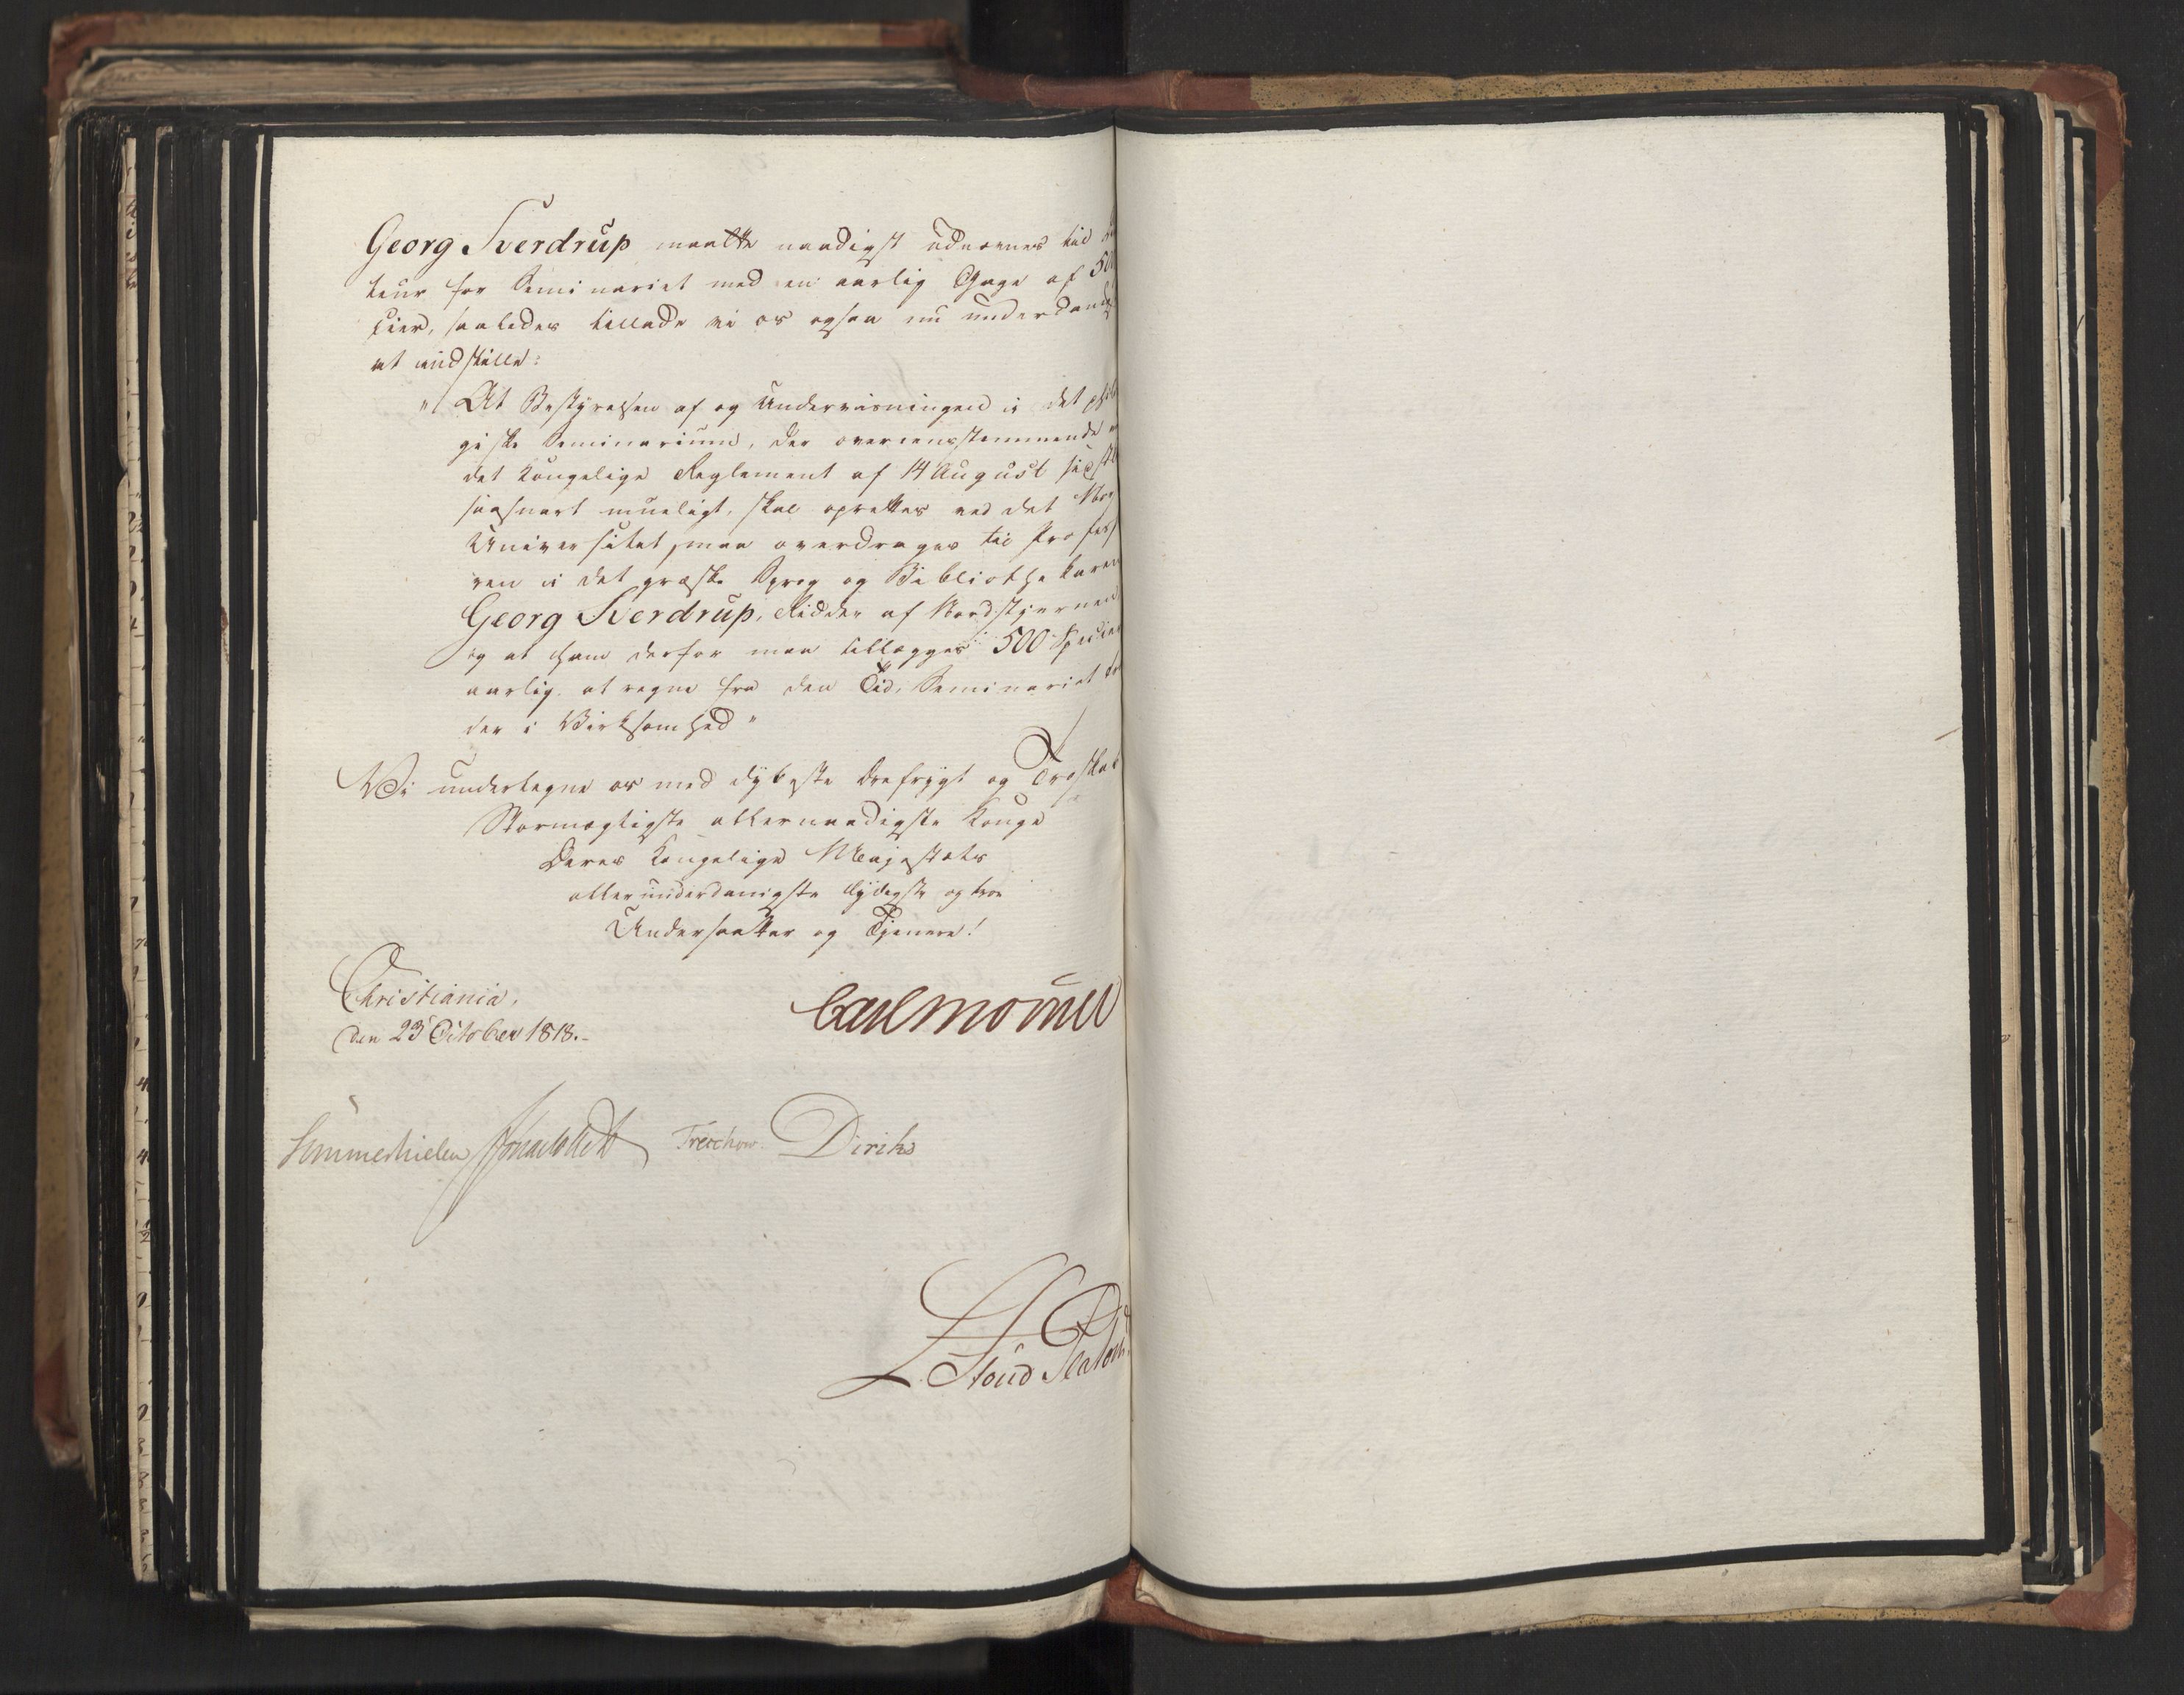 Georg Sverdrup maatte naadigst udnævnes til
teur for Seminariet med en aarlig Gage af 50
cier, saaledes tillade vi os ogsaa nu underdanigst
at indstille:
"At Bestyrelsen af og Undervisningen i det philo
giske Seminarium, der overeensstemmende
det Kongelige Reglement af 14 August sidstl
saasnart mueligt, skal oprettes ved det Nor
Universitet, maa overdrages til Profess
ren i det græske Sprog og Bibliothekaren
Georg Sverdrup, Ridder af Nordstjernen
og at ham derfor maa tillægges 500 Specier
aarlig, at regne fra den Tid, Seminariet træ
der i Virksomhed"
Vi undertegne os med dybeste Ærefrygt og Troskab
Stormægtigste allernaadigste Konge
Deres Kongelige Majestæts
allerunderdanigste lydigste og troe
Undersaatter og Tjenere!
Christiania,
den 23 October 1818.-
Carl Mörner
Sommerhielm Treschow. Diriks
L. Stoud Platou